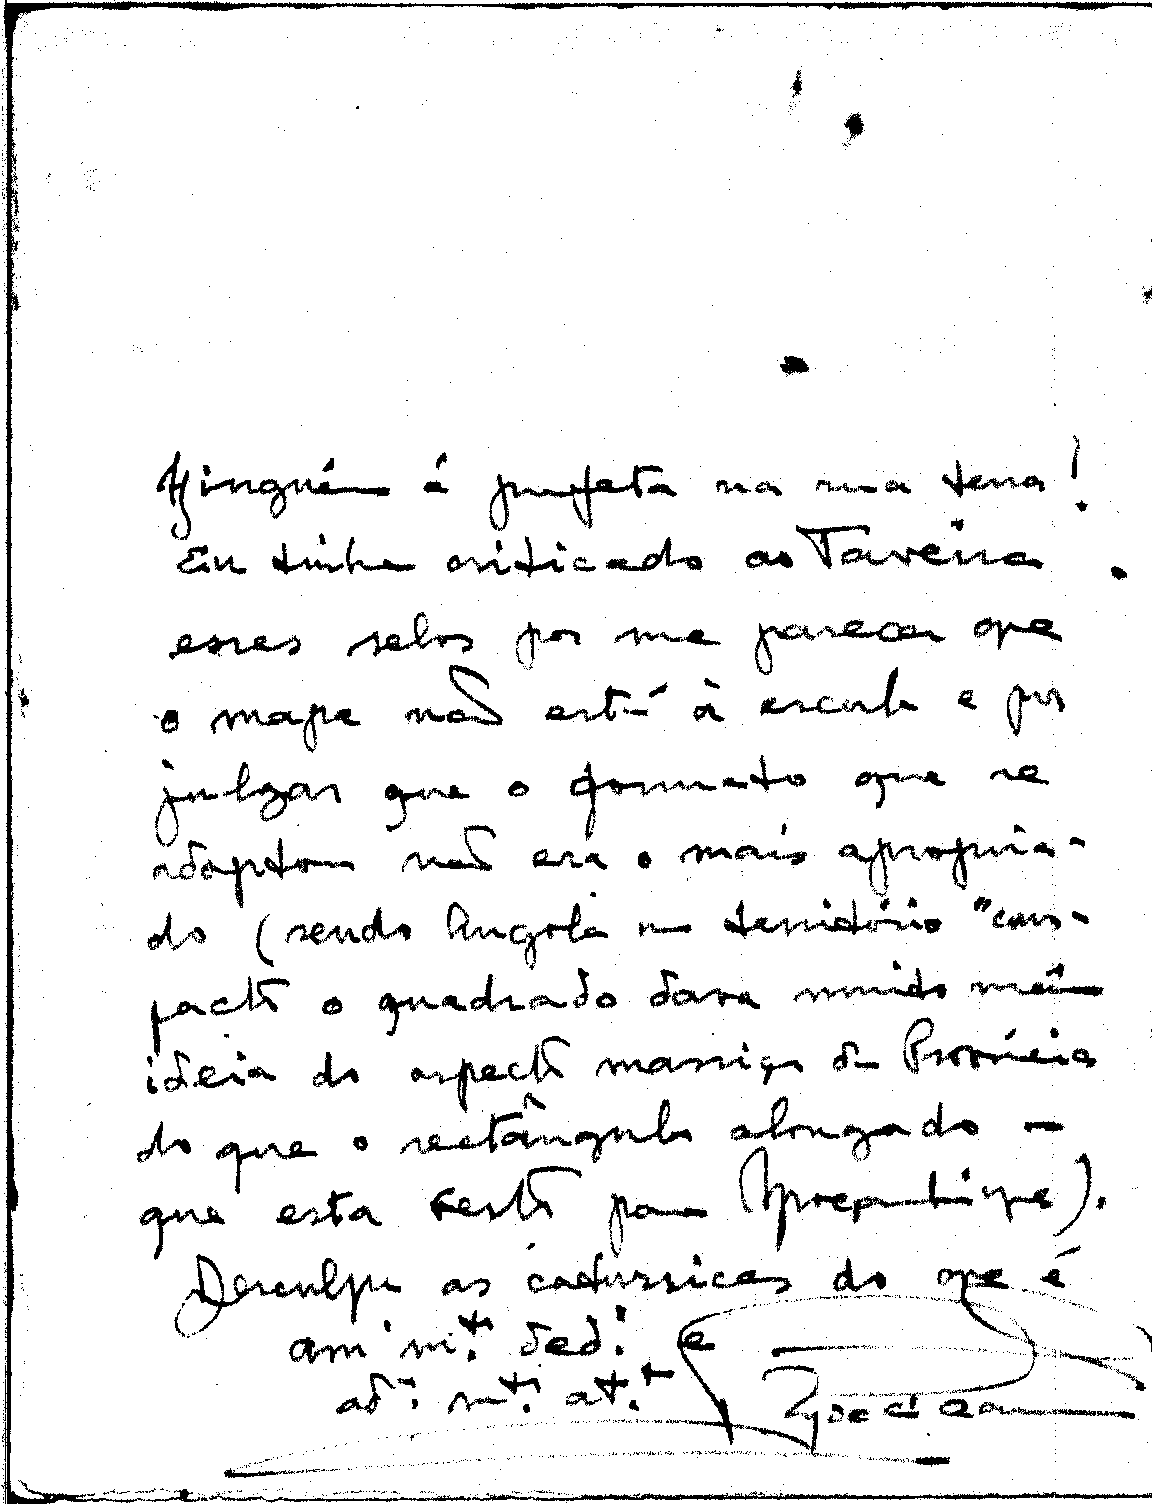 Ninguém é profeta na sua terra!
Eu tinha criticado ao Taveira
esses selos por me parecer que
o mapa não está à escala e por
julgar que o formato que se
adoptou não era o mais apropria-
do (sendo Angola um território "com-
pacto o quadrado dava muito mais
ideia do aspecto massiço da Província
do que o rectângulo alongado -
que esta certo para Moçambique).
Desculpe as do que é
am.º m.to ded.º e
ad.or m.to at.to